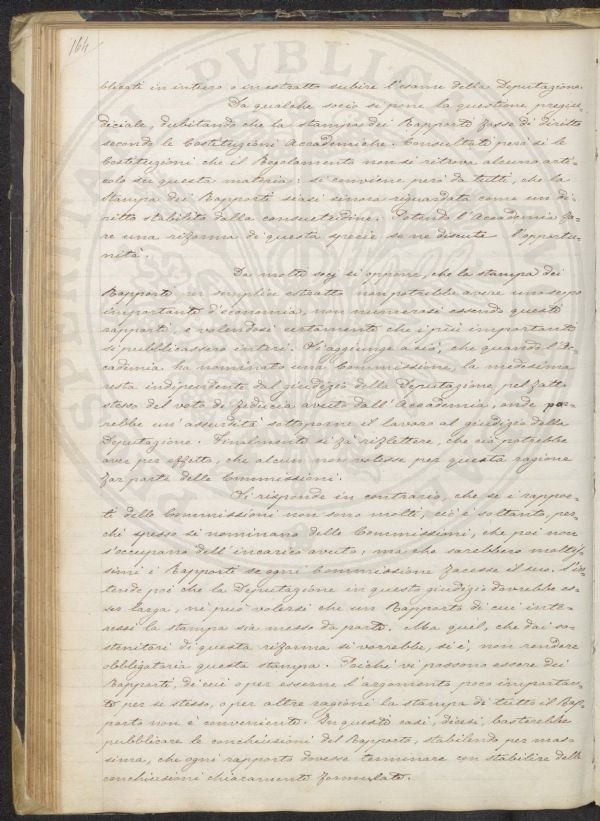 164
blicati in intiero o in estratto subire l'esame della Deputazione.
Da qualche socio si pone la questione pregiu-
diciale, dubitando che la stampa dei Rapporti fosse di diritto
secondo le Costituzioni Accademiche. Consultati però sì le
Costituzioni che il Regolamento non si ritrova alcuno arti-
colo su questa materia: si conviene però da tutti, che la
stampa dei Rapporti siasi sinora riguardata come un di-
ritto stabilito dalla consuetudine. Potendo l'Accademia fa-
re una riforma di questa specie se ne discute l'opportu-
nità.
Da molti socj si oppone, che la stampa dei
Rapporti per semplice estratto non potrebbe avere uno scopo
importante d'economia, non numerosi essendo questi
rapporti, e volendosi certamente che i più importanti
si pubblicassero interi. Si aggiunge a ciò, che quando l'Ac-
cademia ha nominato una Commissione, la medesima
resta indipendente dal giudizio della Deputazione, pel fatto
stesso del voto di fiducia avuto dall'Accademia, onde par-
rebbe un'assurdità sottoporne il lavoro al giudizio della
Deputazione. Finalmente si fa riflettere, che ciò potrebbe
aver per effetto, che alcuni non volesse per questa ragione
far parte delle Commissioni.
Si risponde in contrario, che se i rappor-
ti delle Commissioni non sono molti, ciò è soltanto, per-
chè spesso si nominano delle Commissioni, che poi non
s'occupano dell'incarico avuto; ma che sarebbero moltis-
simi i Rapporti se ogni Commissione facesse il suo. S'in-
tende poi che la Deputazione in questo giudizio dovrebbe es-
ser larga, nè può volersi che un Rapporto di cui inte-
ressi la stampa sia messo da parte. Ma quel, che dai so-
stenitori di questa riforma si vorrebbe, si è, non rendere
obbligatoria questa stampa. Poichè vi possono essere dei
Rapporti, di cui o per esserne l'argomento poco importan-
te per se stesso, o per altre ragioni la stampa di tutto il Rap-
porto non è conveniente. In questi casi, dicesi, basterebbe
pubblicare le conchiusioni del Rapporto, stabilendo per mas-
sima, che ogni rapporto dovesse terminare con stabilire delle
conchiusioni chiaramente formulate.